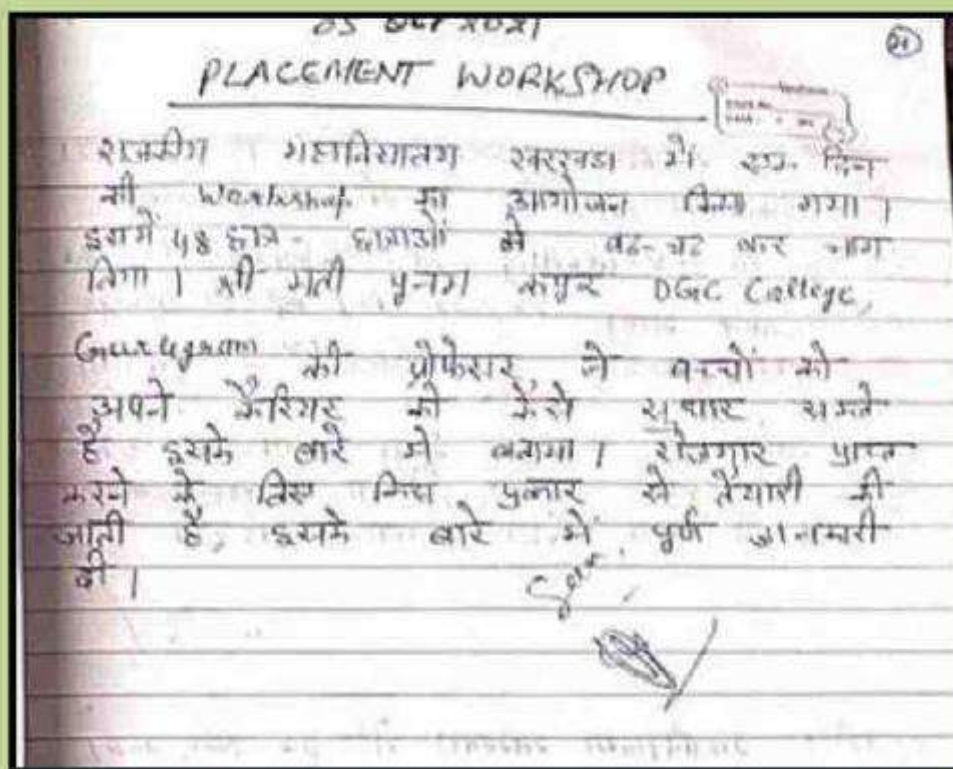 05 Oct 2021
21
PLACEMENT WORKSHOP
राजकीय महाविद्यालय खरखडा में एक दिन
की Workshop का आयोजन किया गया।
इसमें 48 छात्र - छात्राओं ने बढ-चढ कर भाग
लिया। श्री मती पूनम कपूर DGC College,
Gurugram की प्रोफेसर ने बच्चों को
अपने कैरियर को कैसे सुधार सकते
है इसके बारे मे बताया। रोजगार प्राप्त
करने के लिए किस प्रकार से तैयारी की
जाती है, इसके बारे में पूर्ण जानकारी
दी।